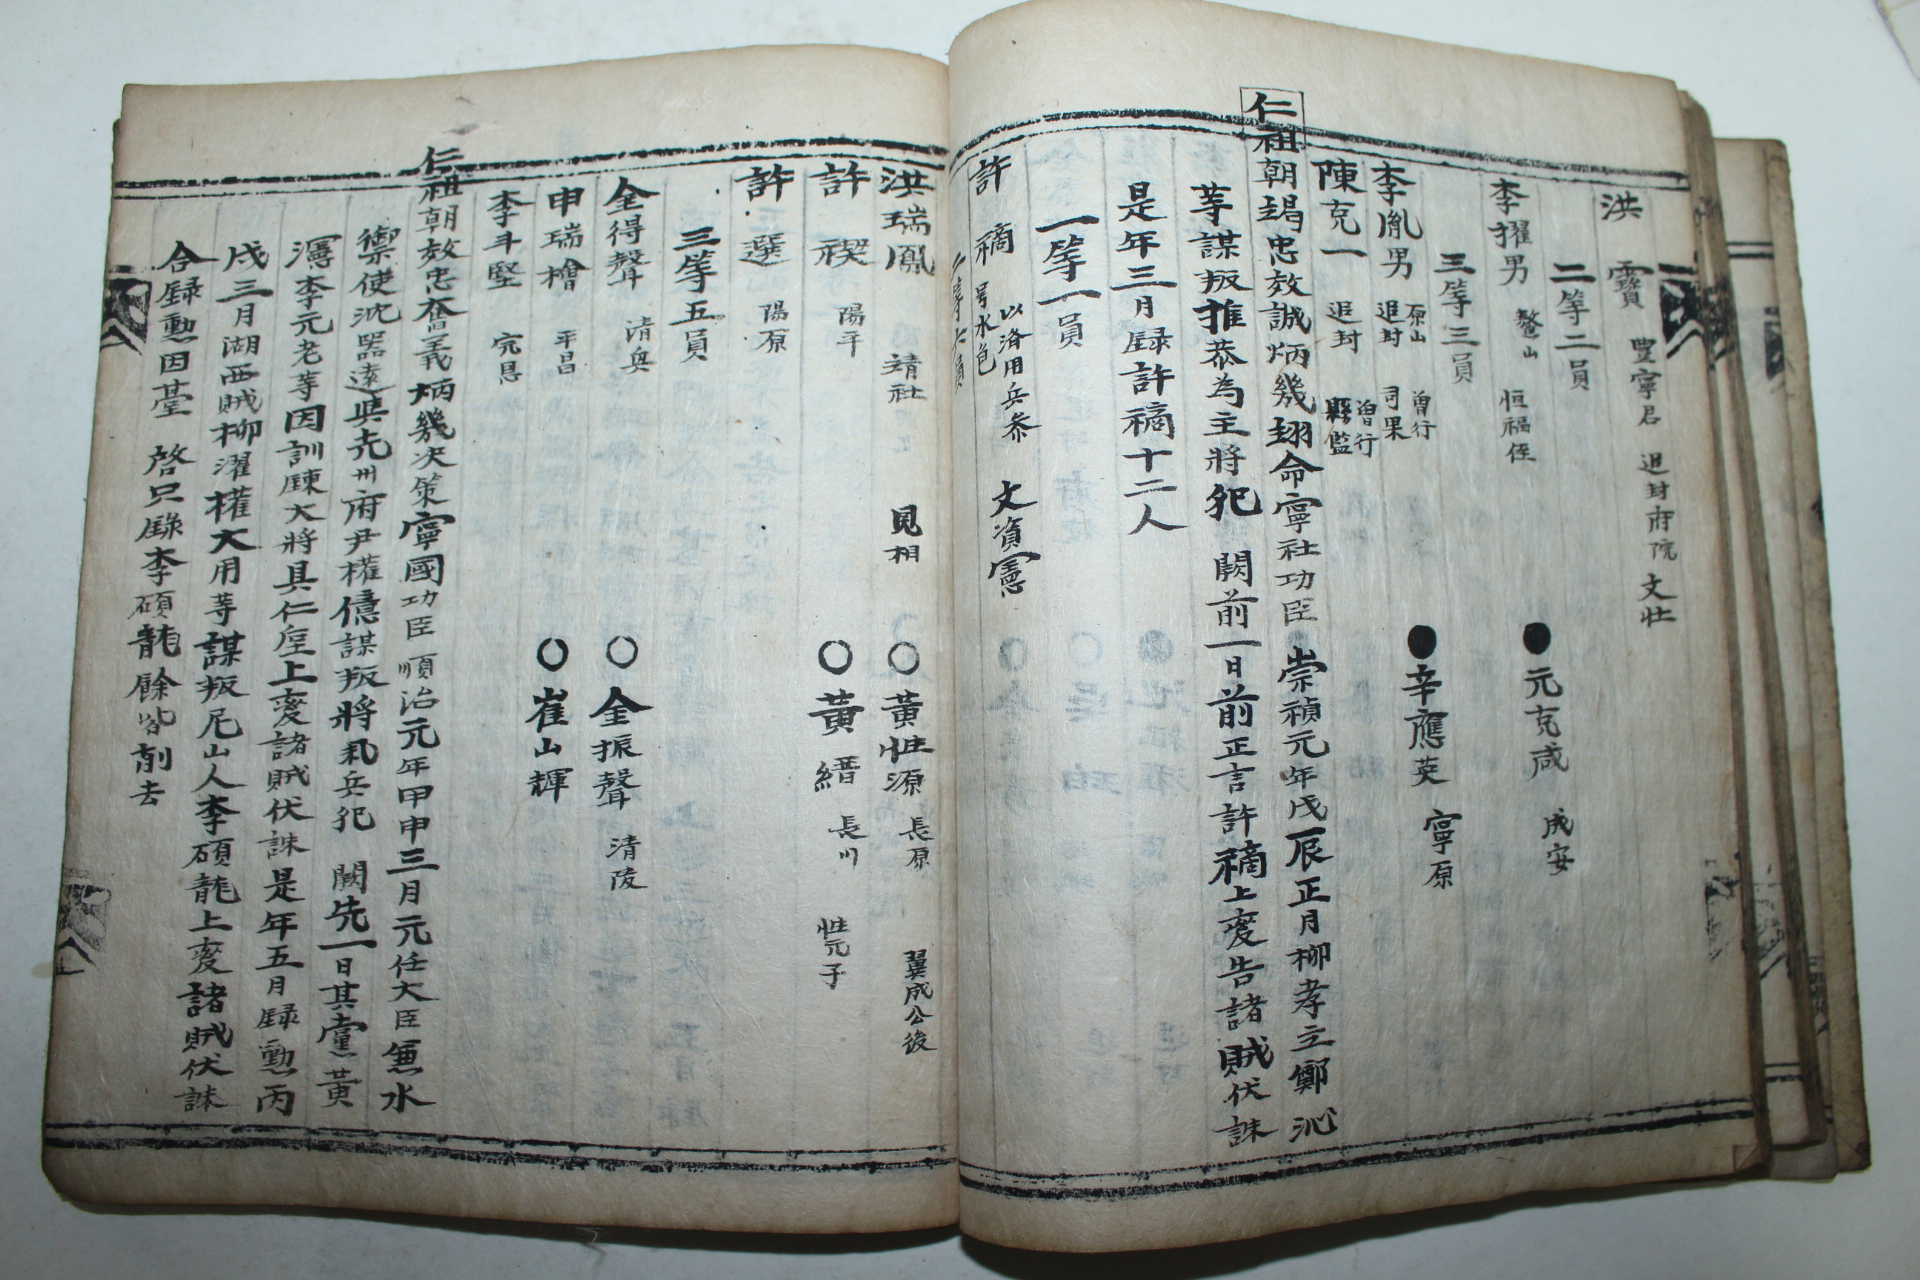 洪霙 豊寧君 追封府院 文壮
二等二員
李擢男 鰲山 恒福侄 ●元克咸 成安
三等三員
李胤男 原山 追封 曽行司果 ●辛應英 寧原
陳克一 追封 曽行縣監
仁祖朝竭忠效誠炳幾翊命寧社功臣 崇禎元年戊辰正月柳孝立鄭沁
等謀叛推恭為主將犯 闕前一日前正言許𥛚上変告諸賊伏誅
是年三月録許𥛚十二人
一等一員
許𥛚 号水色 以済用兵叅 文資憲
二等
洪瑞鳳 靖社 見相 ○黄性源 長原 翼成公後
許禊 陽平 ○黄縉 長川 性元子
許選 陽原
三等五員
全得聲 清兵 ○全振聲 清陵
申瑞檜 平昌 ○崔山輝
李斗堅 完恩
仁祖朝效忠奮義炳幾决策寧國功臣 順治元年甲申三月元任大臣無水
禦使沈器遠與光州府尹權億謀叛將乱兵犯 闕先一日其黨黄
瀗李元老等因訓鍊大將具仁垕上変諸賊伏誅是年五月録勳丙
戌三月湖西賊柳濯權大用等謀叛尼山人李碩龍上変諸賊伏誅
合録勳因臺 啓只錄李碩龍餘皆削去